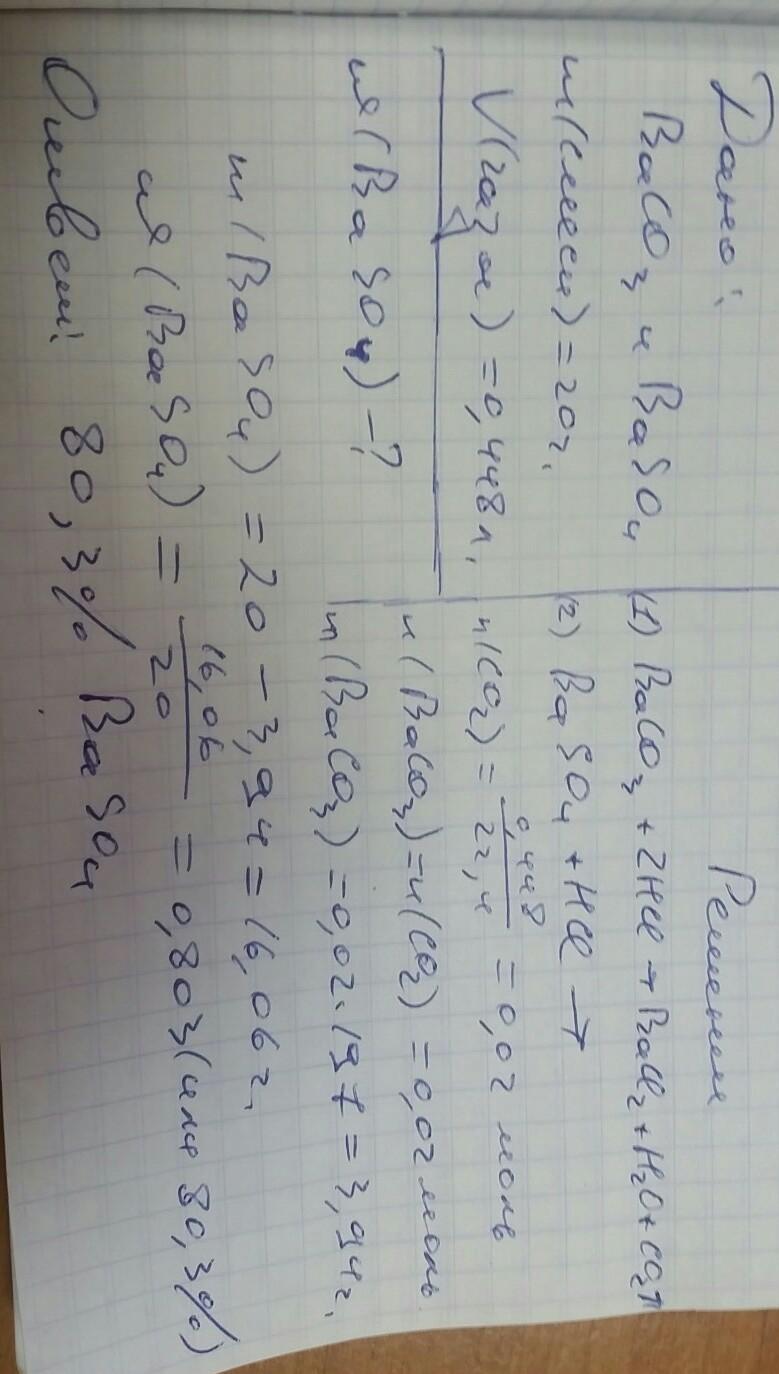 Дано:
BaCO₃ и BaSO₄
m(смеси) = 20г.
V(газа) = 0,448л.
ω(BaSO₄) - ?
Решение
(1) BaCO₃ + 2HCl → BaCl₂ + H₂O + CO₂↑
(2) BaSO₄ + HCl →
n(CO₂) = 0,448 / 22,4 = 0,02 моль
n(BaCO₃) = n(CO₂) = 0,02 моль
m(BaCO₃) = 0,02 · 197 = 3,94г.
m(BaSO₄) = 20 - 3,94 = 16,06г.
ω(BaSO₄) = 16,06 / 20 = 0,803 (или 80,3%)
Ответ: 80,3% BaSO₄